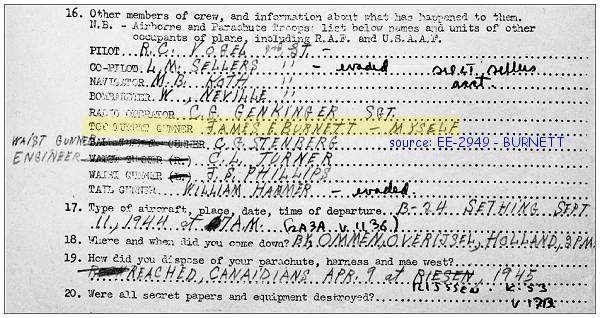 16. Other members of crew, and information about what has happened to them.
N.B. - Airborne and Parachute Troops: list below names and units of other
occupants of plane, including R.A.F. and U.S.A.A.F.
PILOT R.C. VOGEL 2nd LT. -
CO-PILOT L.M. SELLERS " - evaded sect sellers
NAVIGATOR M.B. ROTH " asst.
BOMBARDIER W., NEVILLE "
RADIO OPERATOR C.G. GENKINGER SGT.
TOP TURRET GUNNER JAMES E BURNETT - MYSELF
WAIST GUNNER BALL TURRET GUNNER C.G. STENBERG source: EE-2949 - BURNETT
ENGINEER WAIST GUNNER (R.) C.L. TURNER
WAIST GUNNER (L.) J.S. PHILLIPS
TAIL GUNNER WILLIAM HARMER - evaded
17. Type of aircraft, place, date, time of departure. B-24 SETHING SEPT.
11, 1944 at 7AM. (2A3A V.1136)
18. Where and when did you come down? BY, OMMEN, OVERIJSEL, HOLLAND, 3PM.
19. How did you dispose of your parachute, harness and mae west?
REACHED, CANAIDIANS APR. 9 at RIESEN, 1945
20. Were all secret papers and equipment destroyed? RIJSSEN K.53